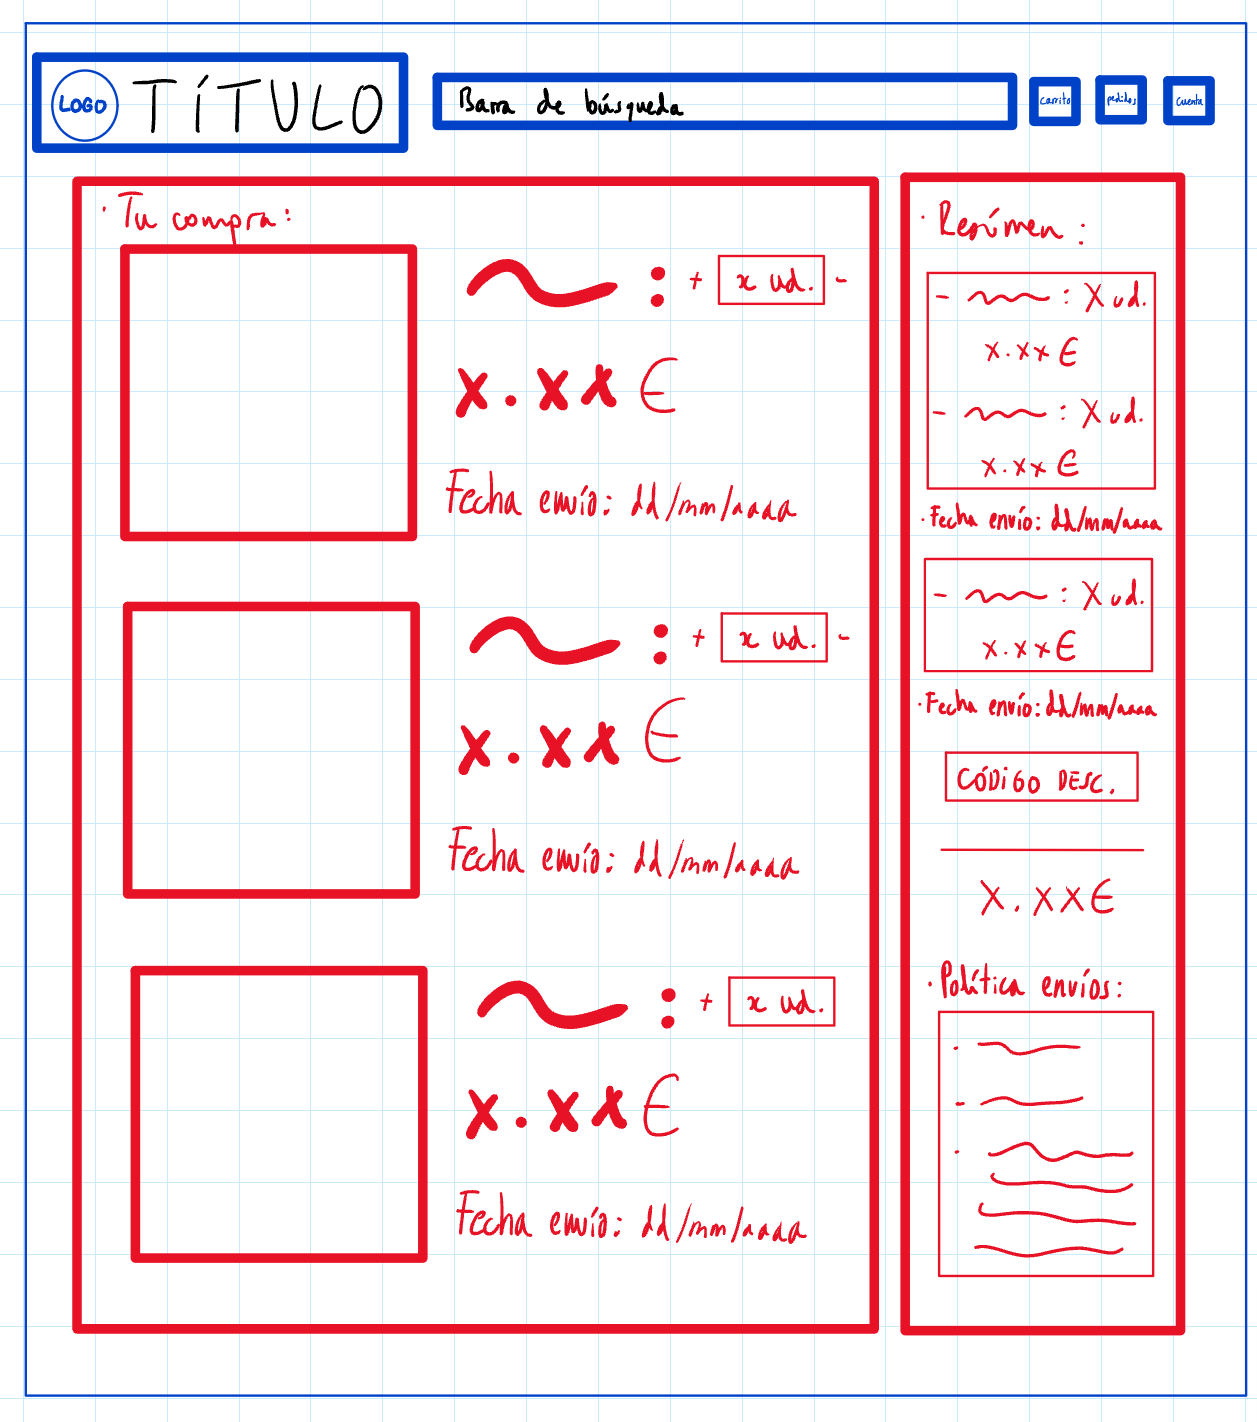 LOGO TÍTULO
Barra de búsqueda
carrito
pedidos
cuenta
· Tu compra:
: + x ud. -
x.xx €
Fecha envío: dd/mm/aaaa
: + x ud. -
x.xx €
Fecha envío: dd/mm/aaaa
: + x ud.
x.xx €
Fecha envío: dd/mm/aaaa
· Resúmen :
- : X ud.
x.xx €
- : X ud.
x.xx €
· Fecha envío: dd/mm/aaaa
- : X ud.
x.xx €
· Fecha envío: dd/mm/aaaa
CÓDIGO DESC.
X.XX€
· Política envíos: